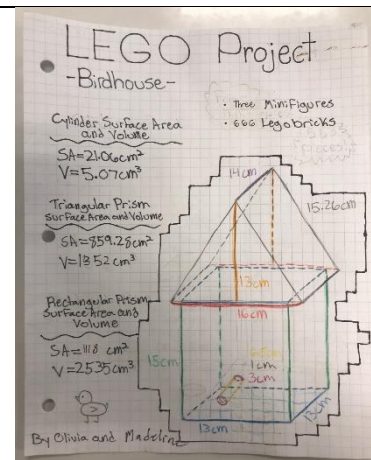 LEGO Project
-Birdhouse-
• Three Minifigures
• 666 Legobricks
Cylinder Surface Area
and Volume
SA=21.06cm²
V=5.07cm³
Triangular Prism
Surface Area and Volume
SA=859.28cm²
V=1352cm³
Rectangular Prism
Surface Area and
Volume
SA=1118 cm²
V=2535cm³
14cm
15.26cm
13cm
16cm
15cm
1cm
3cm
13cm
13cm
By Olivia and Madeline